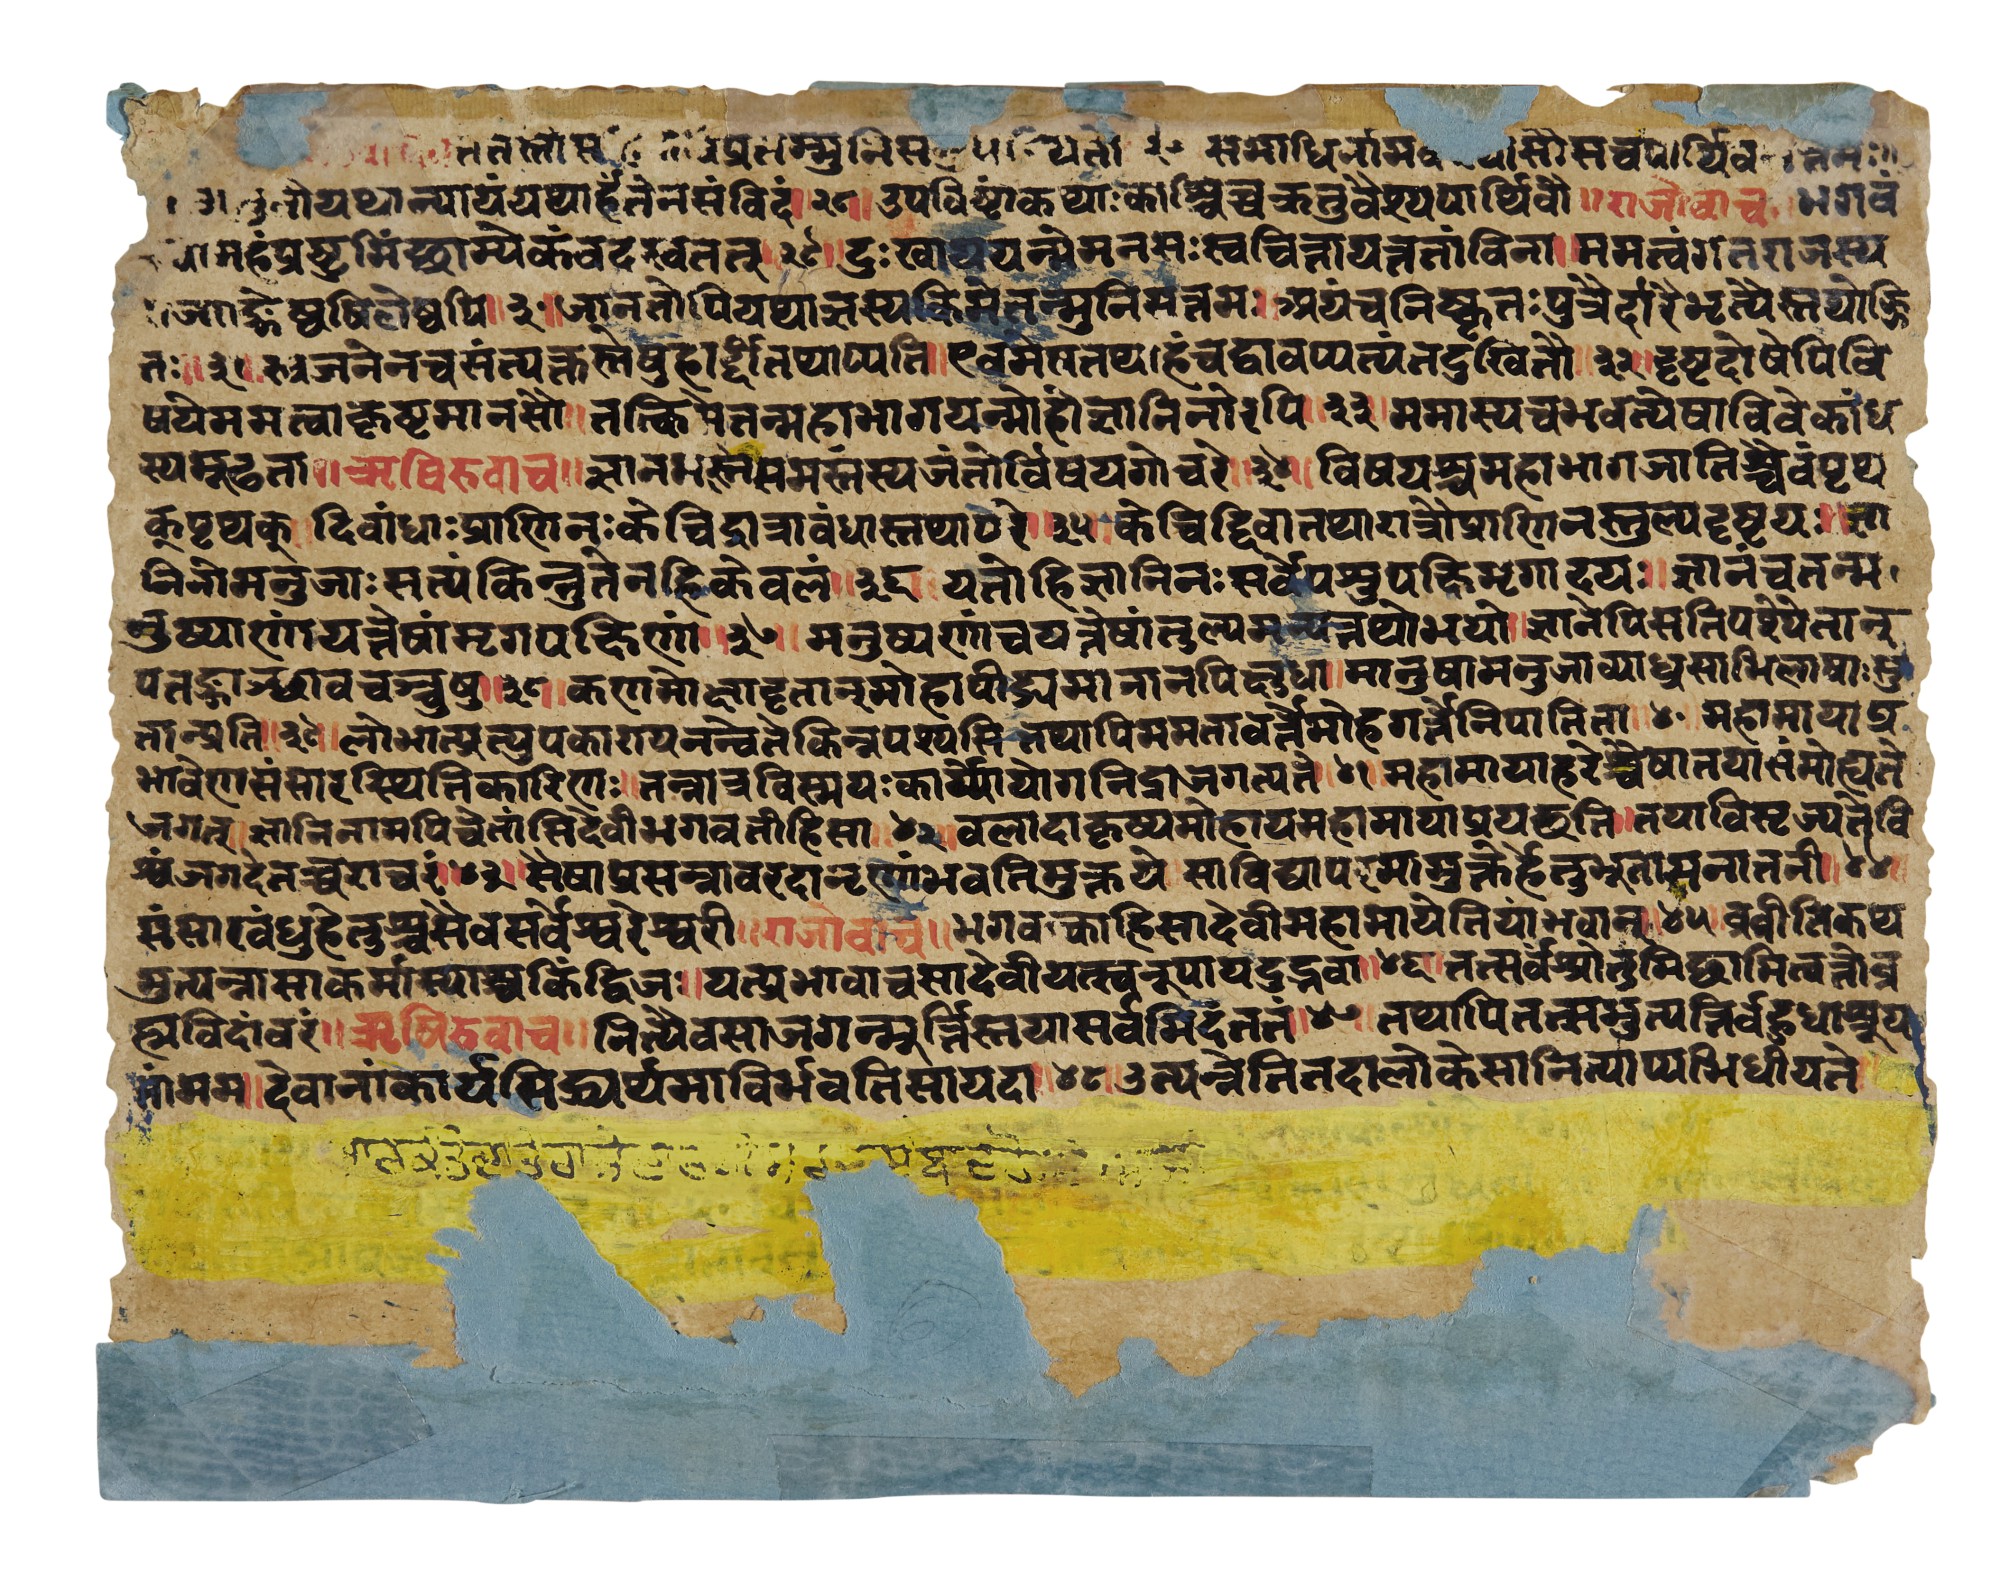 ततस्तौस प्रतम्मुनिस स्थितौ समाधिर्नाम सौसवपार्थिव त्तमः॥
तौयथान्यायंयथार्हंतेनसंविदं॥२८॥उपविष्टौकथाःकाश्चिच्चक्रतुवैश्यपार्थिवौ॥राजोवाच॥भगवं
महंप्रष्टुमिछाम्येकंवदस्वतत्॥२९॥दुःखाययन्मेमनसःस्वचित्तायत्ततांविना॥ममत्वंगतराजस्य
ज्याङ्गेष्वखिलेष्वपि॥३०॥जानतोपियथाज्ञस्यकिमेतन्मुनिसत्तमः॥अयंचनिष्कृतःपुत्रैर्दारैर्भृत्यैस्तथोज्झि
तः॥३१॥स्वजनेनचसंत्यक्तस्तेषुहार्द्दीतथाप्यति॥एवमेसतथाहंचद्वावप्यत्यंतदुखितौ॥३२॥दृष्टदोषेपिवि
षयेममत्वाकृष्टमानसौ॥तत्किमेतन्महाभागयन्मोहोज्ञानिनोरपि॥३३॥ममास्यचभवत्येषाविवेकांध
स्यमूढता॥ऋषिरुवाच॥ज्ञानमस्तिसमस्तस्यजंतोर्विषयगोचरे॥३४॥विषयश्चमहाभागजातिश्चैवंपृथ
क्पृथक्॥दिवांधाःप्राणिनःकेचिद्रात्रावंधास्तथापरे॥३५॥केचिद्दिवातथारात्रौप्राणिनस्तुल्यदृष्टयः॥ज्ञा
निनोमनुजाःसत्यंकिन्तुतेनहिकेवलं॥३६॥यतोहिज्ञानिनःसर्वेपशुपक्षिमृगादयः॥ज्ञानंचतन्म
नुष्याणांयत्तेषांमृगपक्षिणां॥३७॥मनुष्यणांचयत्तेषांतुल्यमन्यत्तथोभयो॥ज्ञानेपिसतिपश्येतान्
पतङ्गाञ्छावचञ्चुषु॥३८॥कणमोक्षादृतान्मोहात्पीड्यमानानपिक्षुधा॥मानुषामनुजाव्याध्रसाभिलाषाःसु
तान्प्रति॥३९॥लोभात्प्रत्युपकारायनन्वेतेकिन्नपश्यसितथापिममतावर्त्तेमोहगर्त्तेनिपातिता॥४०॥महामायाप्र
भावेणसंसारस्थितिकारिणः॥तन्नात्रविस्मयःकार्योयोगनिद्राजगत्पते॥४१॥महामायाहरेश्चैषातयासंमोह्यते
जगत्॥ज्ञानिनामपिचेतांसिदेवीभगवतीहिसा॥४२॥वलादाकृष्यमोहायमहामायाप्रयछति॥तयाविसृज्यतेवि
श्वंजगदेतच्चराचरं॥४३॥सैषाप्रसन्नावरदानृणांभवतिमुक्तये॥साविद्यापरमामुक्तेर्हेतुभूतासनातनी॥४४॥
संसारवंधुहेतुश्चसैवसर्वेश्वरेश्वरी॥राजोवाच॥भगवन्काहिसादेवीमहामायेतियांभवान्॥४५॥व्रवीतिकथ
मुत्पन्नासाकर्मास्याश्चकिंद्विज॥यत्प्रभावाचसादेवीयत्स्वरूपायदुद्भवा॥४६॥तत्सर्वंश्रोतुमिछामित्वत्तोव्र
ह्मविदांवरं॥ऋषिरुवाच॥नित्यैवसाजगन्मूर्त्तिस्तयासर्वमिदंततं॥४७॥तथापितत्समुत्पत्तिर्वहुधाश्रूय
तांमम॥देवानांकार्यसिद्ध्यर्थमाविर्भवतिसायदा॥४८॥उत्पन्नेतितदालोकेसानित्याप्यभिधीयते॥